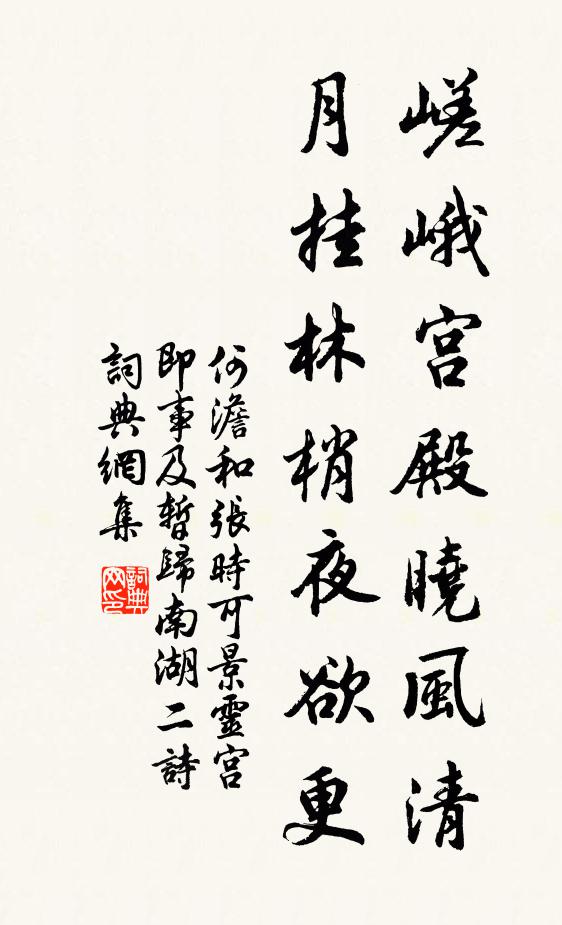 嵯峨宮殿曉風清
月挂林梢夜欲更
何澹和張時可景靈宮
即事及暫歸南湖二詩
詞典網集
詞典
网印